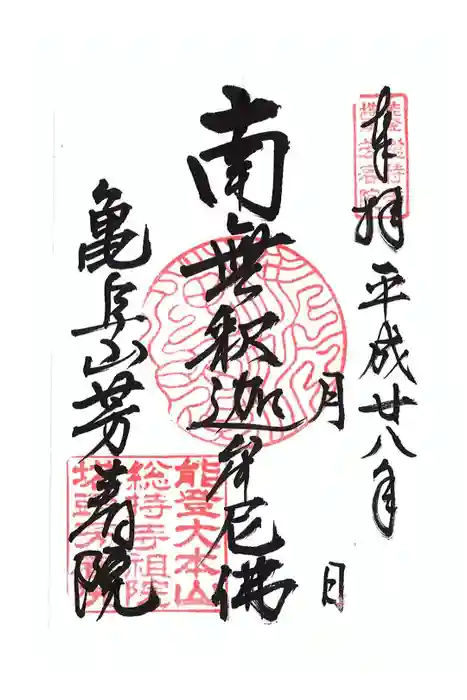 奉拝 平成廿八年
月 日
南無釈迦牟尼佛
亀阜山芳春院
能登大本山
總持寺祖院
塔頭芳春院